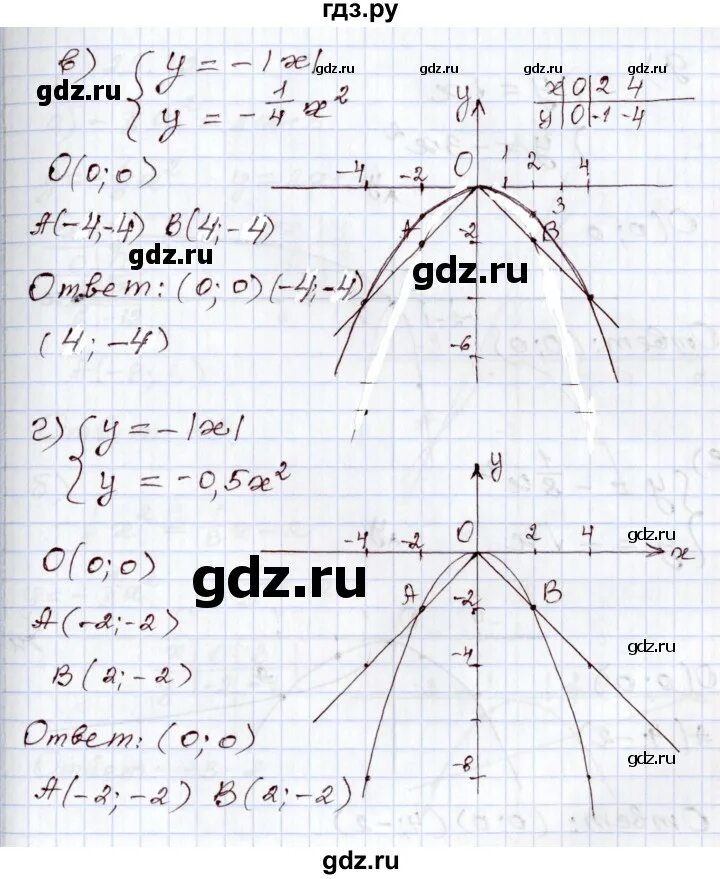 гдз.ру
в) { y = -|x|
y = -1/4 x²
x | 0 | 2 | 4
y | 0 | -1 | -4
O(0; 0)
A(-4;-4) B(4; -4)
Ответ: (0; 0) (-4; -4)
(4; -4)
y
-4 -2 O 1 2 3 4
A B
-2
-6
г) { y = -|x|
y = -0,5x²
O(0; 0)
A(-2; -2)
B(2; -2)
Ответ: (0; 0)
A(-2; -2) B(2; -2)
y
-4 -2 O 2 4 x
A B
-2
-4
-8
gdz.ru gdz.ru gdz.ru
gdz.ru
gdz.ru
gdz.ru
gdz.ru
gdz.ru
gdz.ru
gdz.ru
gdz.ru